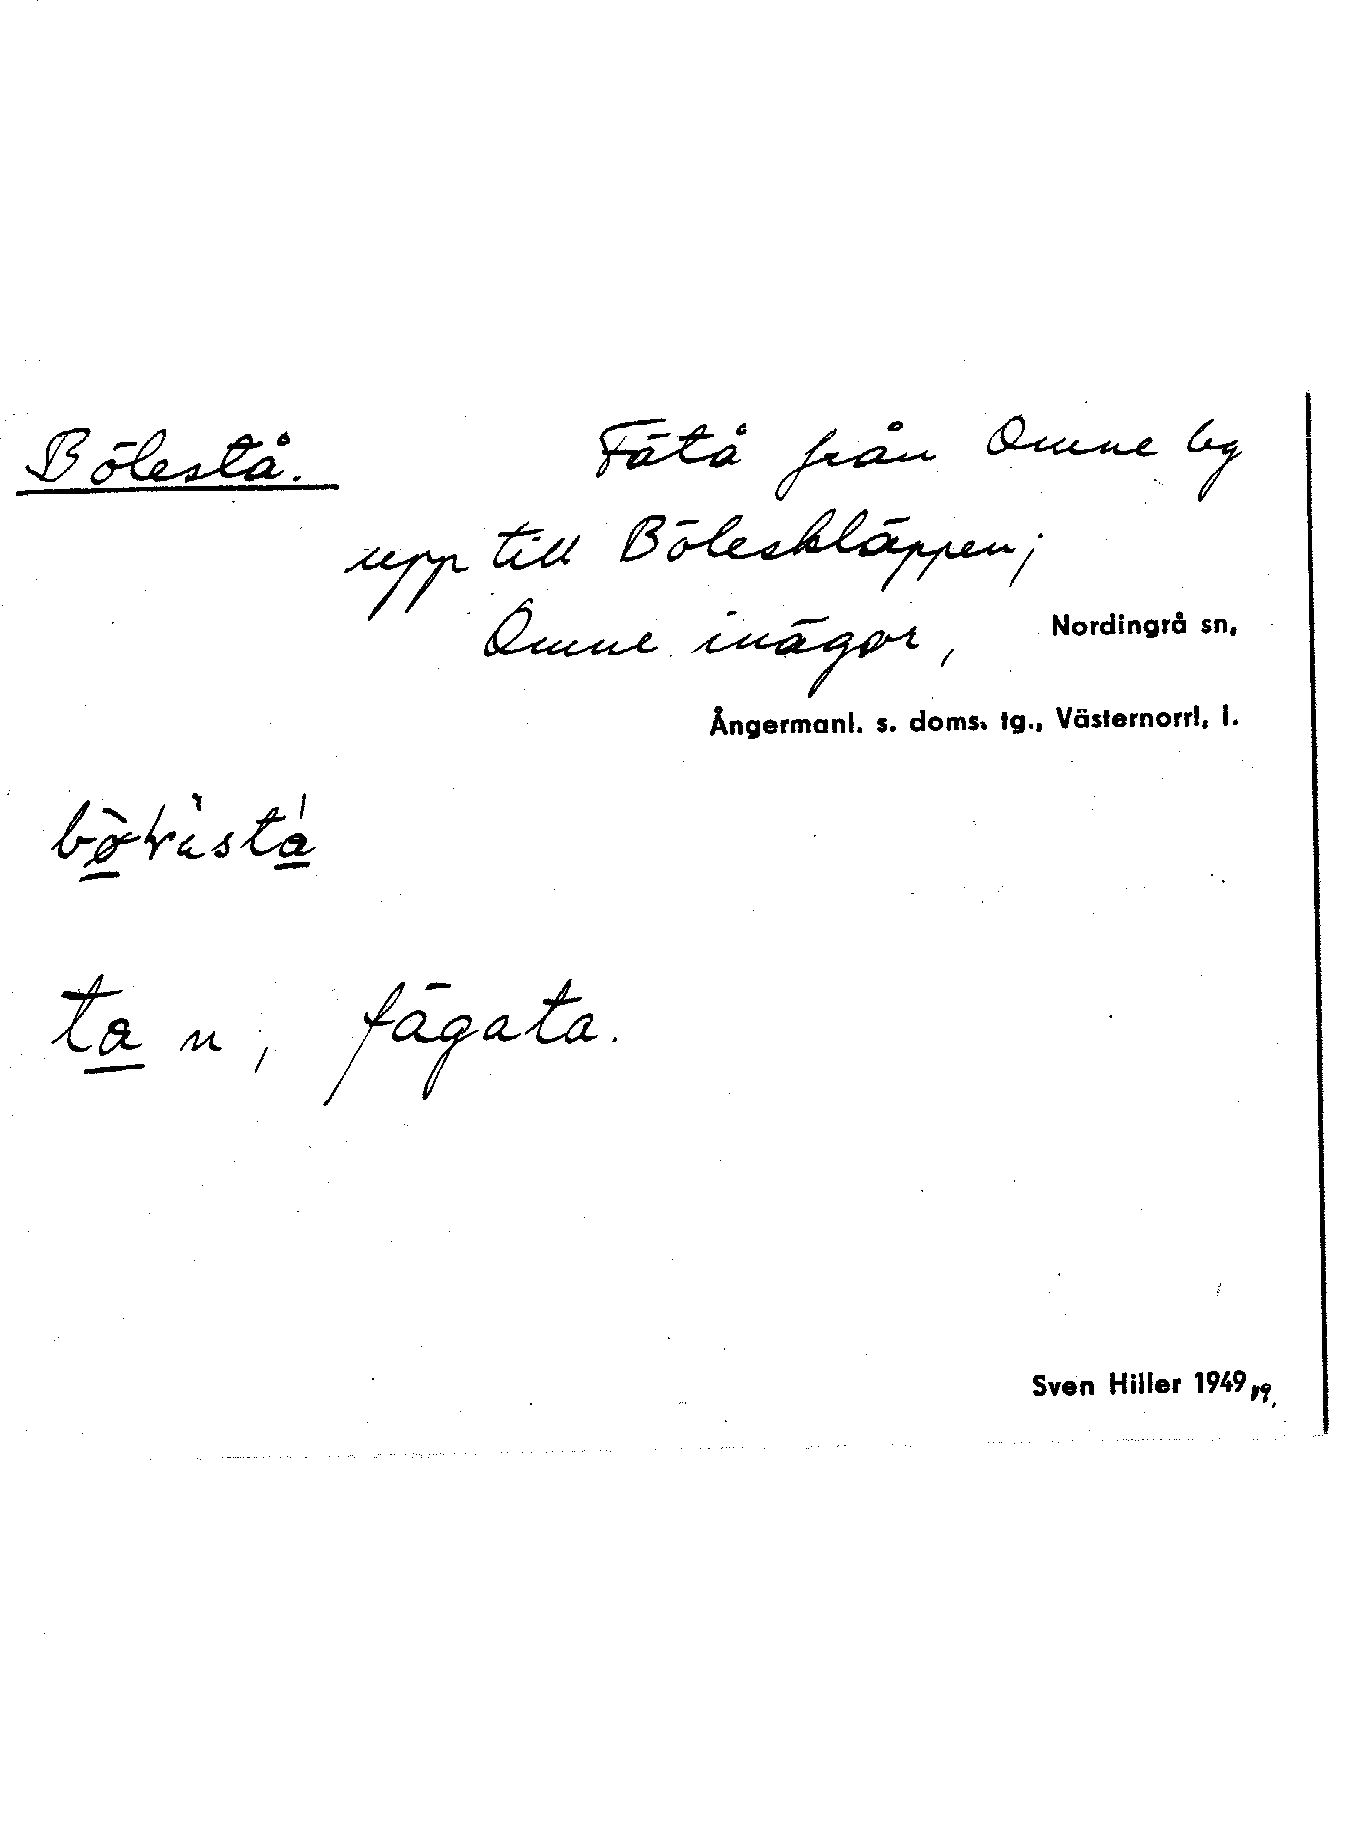 Bölestå. Fätå från Omne by
upp till Böleskläppen;
Omne inägor, Nordingrå sn,
Ångermanl. s. doms. tg., Västernorrl. l.
ta n; fägata.
Sven Hiller 1949